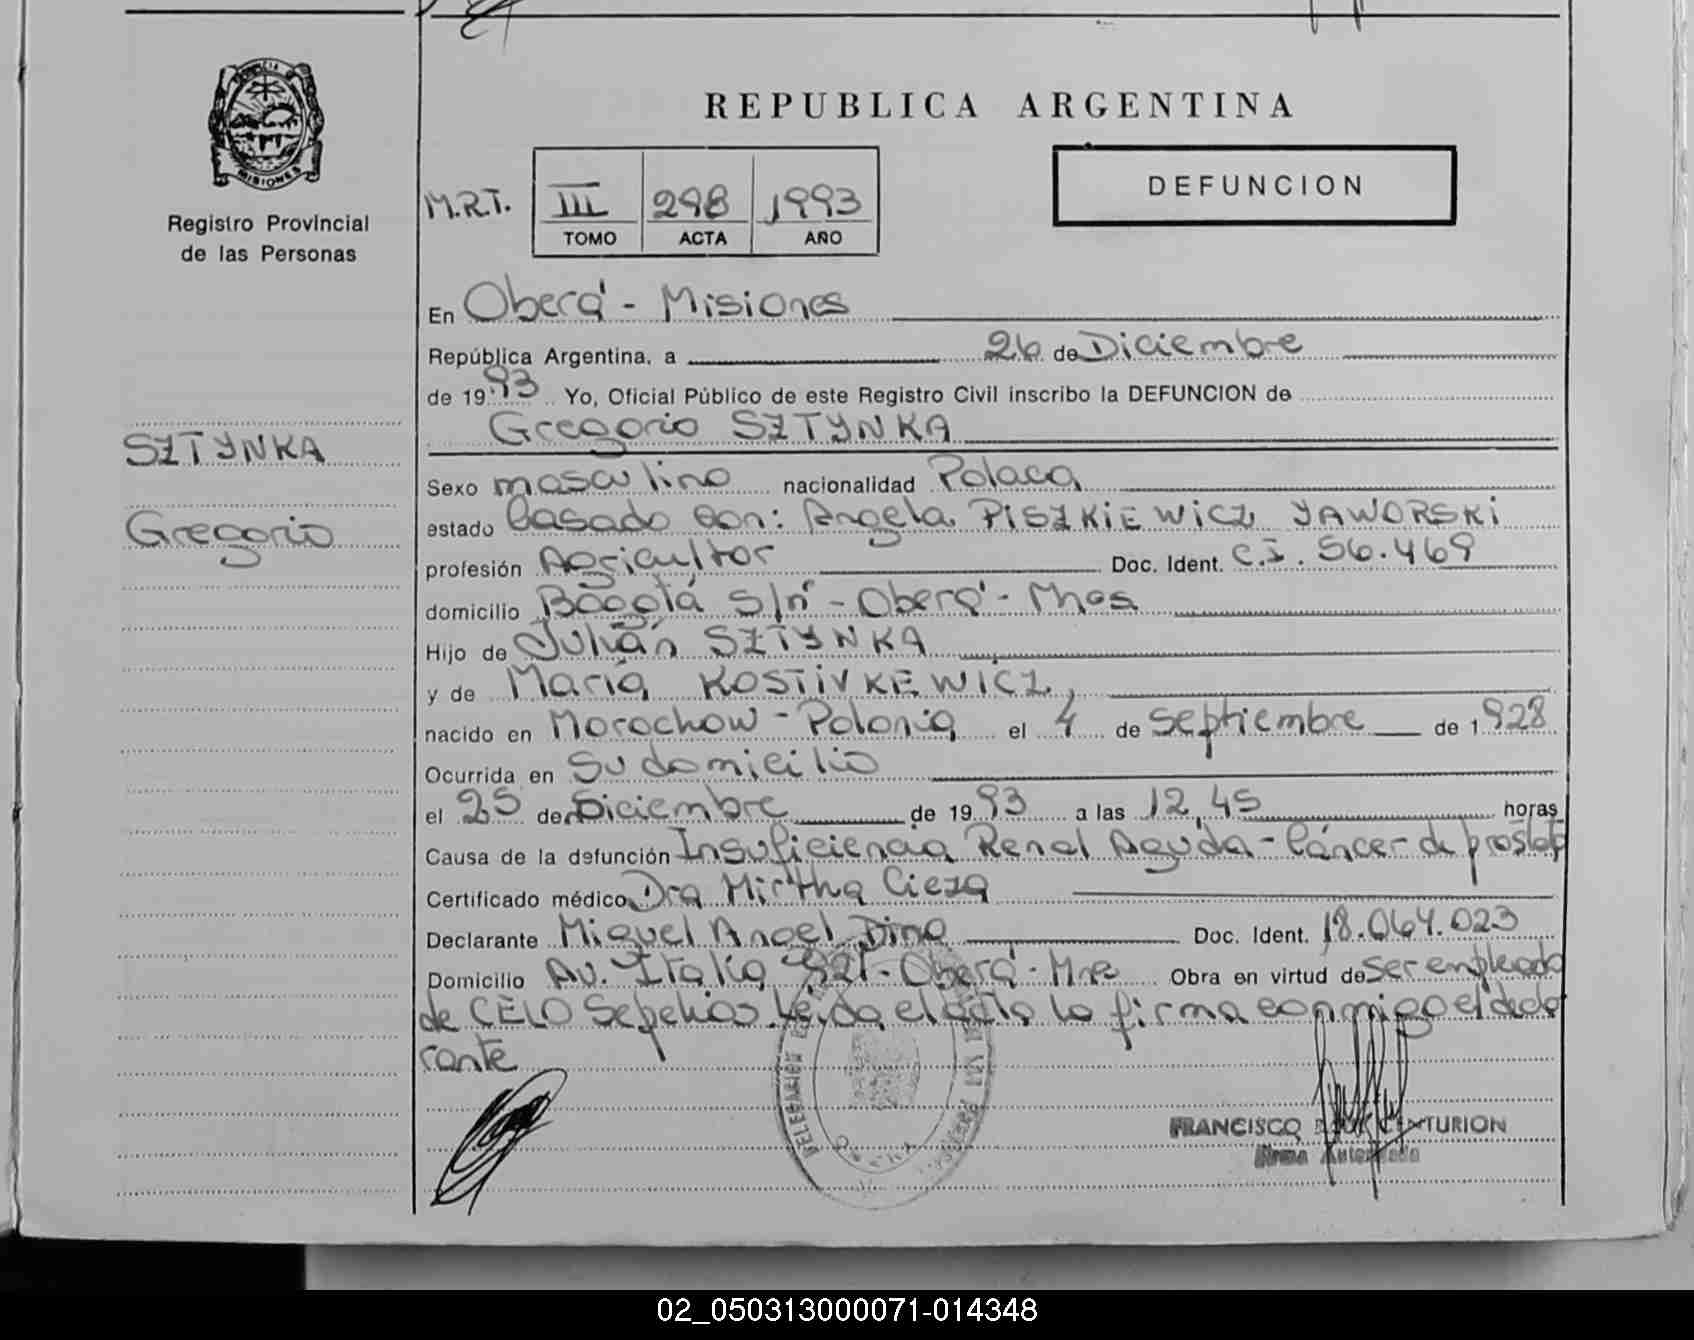 REPUBLICA ARGENTINA
PROVINCIA D
MISIONES
Registro Provincial
de las Personas
M.R.T. III 298 1993
TOMO ACTA AÑO
DEFUNCION
En Oberá - Misiones
República Argentina, a 26 de Diciembre
de 1993 Yo, Oficial Público de este Registro Civil inscribo la DEFUNCION de
Gregorio SZTYNKA
SZTYNKA
Gregorio
Sexo masculino nacionalidad Polaca
estado Casado con: Angela PISZKIEWICZ YAWORSKI
profesión Agricultor Doc. Ident. C.I. 56.469
domicilio Bogotá s/nº - Oberá - Mnes
Hijo de Julián SZTYNKA
y de María KOSTIVKEWICZ,
nacido en Morochow - Polonia el 4 de Septiembre de 1928
Ocurrida en Su domicilio
el 25 de Diciembre de 1993 a las 12,45 horas
Causa de la defunción Insuficiencia Renal Aguda - Cáncer de prostata
Certificado médico Dra Mirtha Cieza
Declarante Miguel Angel Dino Doc. Ident. 18.064.023
Domicilio Av. Italia 921 - Oberá - Mnes Obra en virtud de ser empleado
de CELO Sepelios Leída el acta la firma conmigo el decla
rante
FRANCISCO CENTURION
Firma Autorizada
02_050313000071-014348